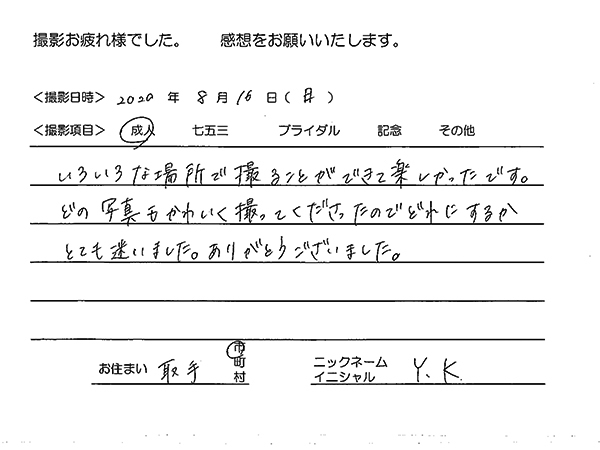 撮影お疲れ様でした。　感想をお願いいたします。
＜撮影日時＞ 2020 年 8 月 16 日（日）
＜撮影項目＞ 成人　七五三　ブライダル　記念　その他
いろいろな場所で撮ることができて楽しかったです。
どの写真もかわいく撮ってくださったのでどれにするか
とても迷いました。ありがとうございました。
お住まい 取手 市町村　ニックネーム イニシャル Y.K